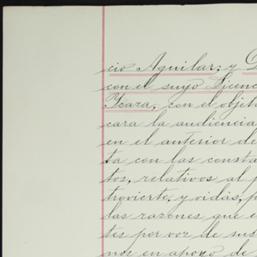 cio Aguilar; y D
con el suyo Licenc
Ycaza, con el objet
cara la audiencia
en el anterior de
ta con las consta
tos, relativos al p
trovierte, y oidas, p
das razones que e
tes por voz de sus
nos en apoyo de